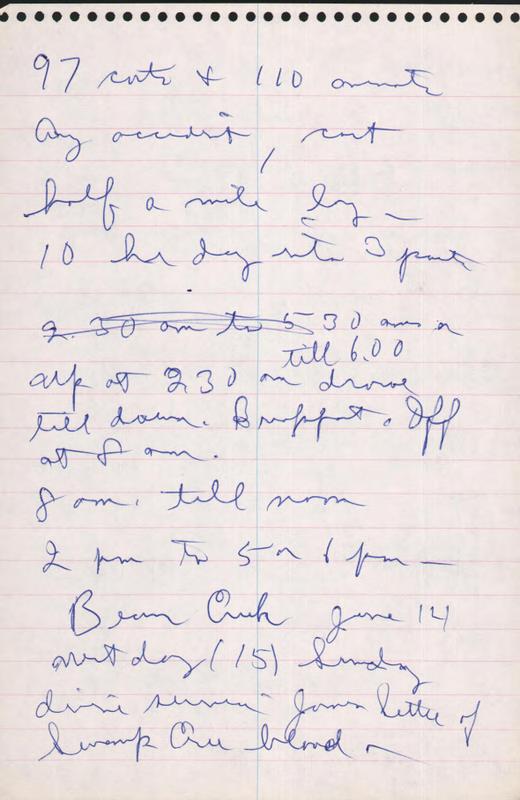 97 carts & 110 animals
Any accident, cart
half a mile lay —
10 hr day into 3 parts
2.30 am to 5 30 am or
till 6.00
up at 230 am drove
till dawn. Breakfast. Off
at 8 am.
8 am. till noon
2 pm to 5 or 6 pm —
Beam Creek June 14
next day (15) Sunday
divine service James Settee of
Swamp Cree blood —